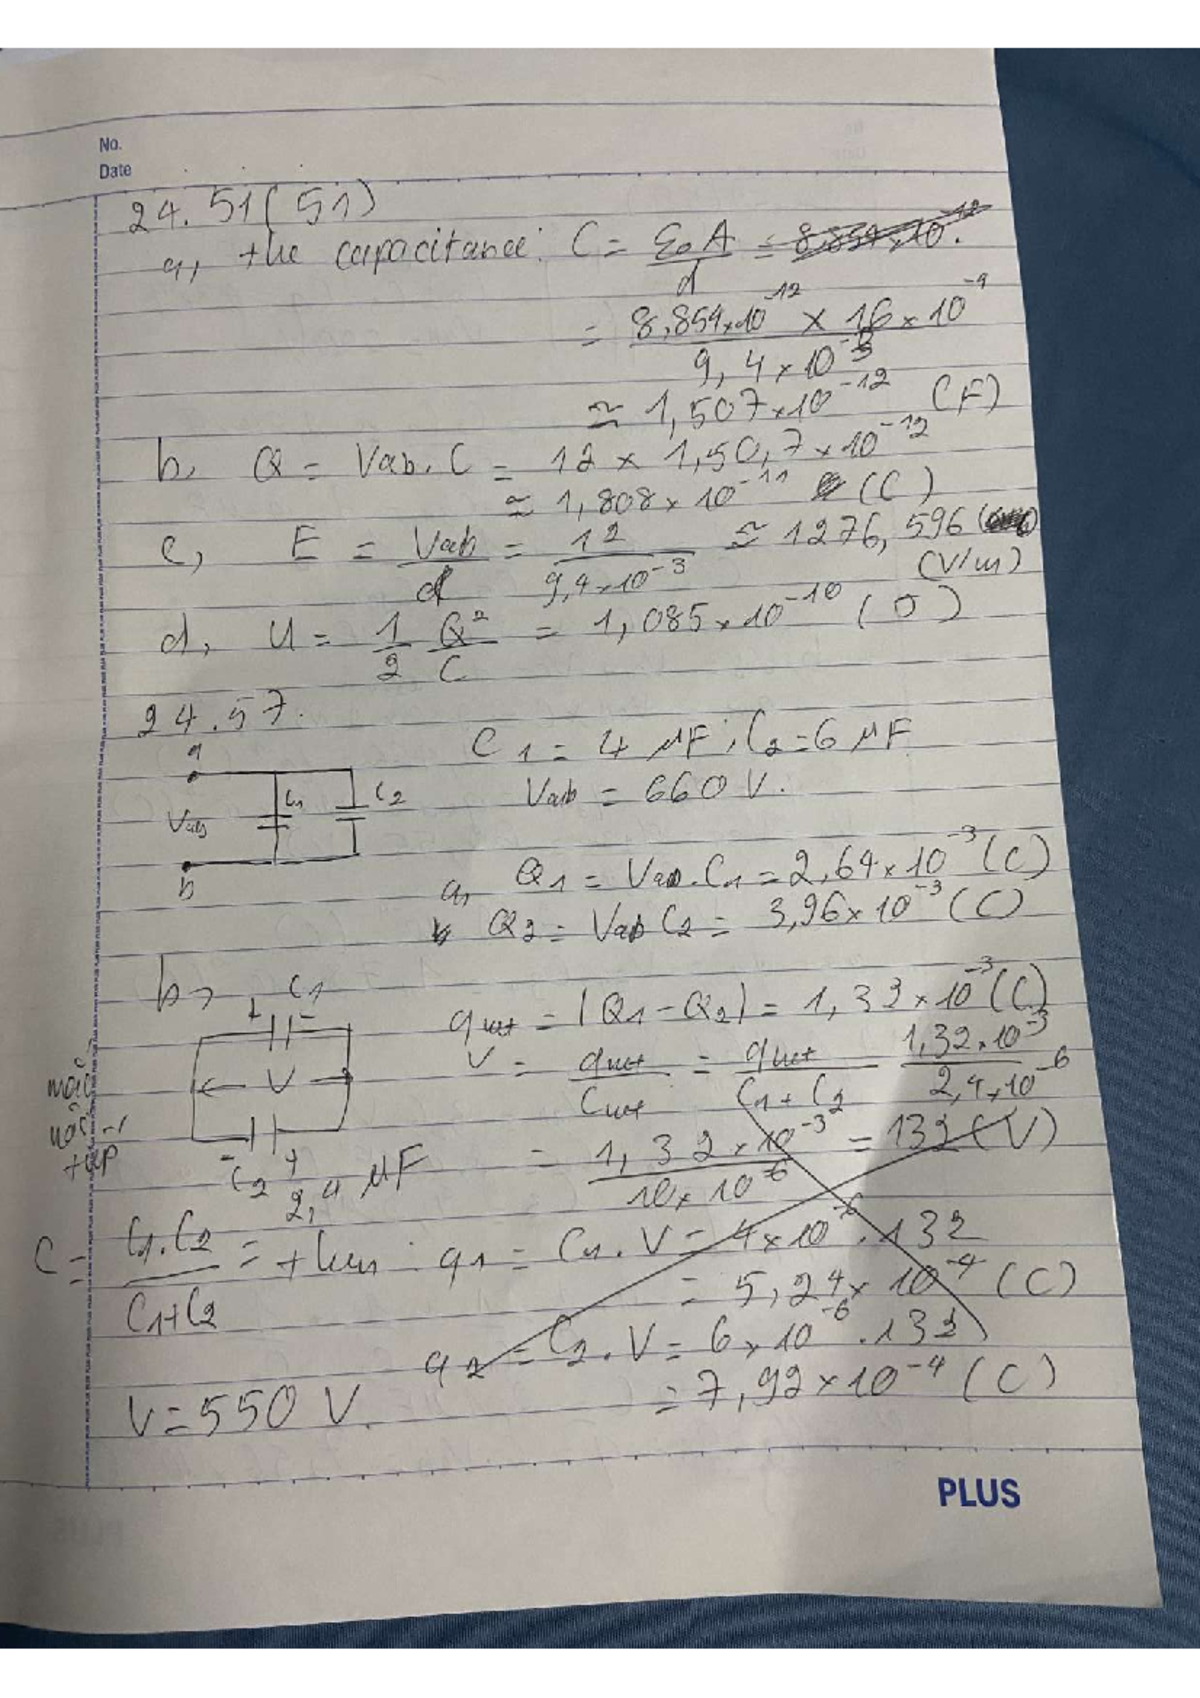 No.
Date
24.51(51)
a, the capacitance: C = ε₀A/d = 8,854×10⁻¹².
= 8,854×10⁻¹² × 16×10⁻⁴ / 9,4×10⁻³
≈ 1,507×10⁻¹² (F)
b, Q = Vab.C = 12 × 1,50,7×10⁻¹²
≈ 1,808×10⁻¹¹ (C)
c, E = Vab/d = 12/9,4×10⁻³ ≈ 1276,596
(V/m)
d, U = 1/2 Q²/C = 1,085×10⁻¹⁰ (J)
24.57.
a
C1 = 4 μF; C2=6 μF
Vab = 660 V.
Vab C1 C2
b
a, Q1 = Vab.C1 = 2,64×10⁻³ (C)
Q2 = Vab C2 = 3,96×10⁻³ (C)
b,
+ C1 -
qnet = |Q1-Q2| = 1,32×10⁻³ (C)
V
V = qnet/Cnet = qnet/C1+C2 = 1,32×10⁻³/2,4×10⁻⁶
- C2 +
= 1,32×10⁻³/10×10⁻⁶ = 132 (V)
C = C1.C2/C1+C2 = 2,4 μF
then: q1 = C1.V = 4×10⁻⁶.132
= 5,24×10⁻⁴ (C)
q2 = C2.V = 6×10⁻⁶.132
= 7,92×10⁻⁴ (C)
V=550 V.
PLUS